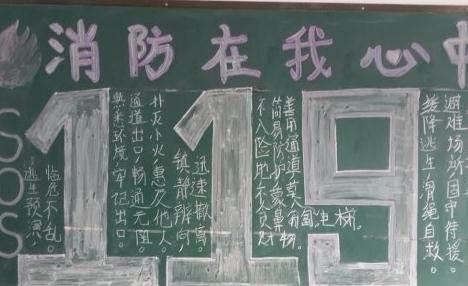 消防在我心中
SOS
119
逃生预演
临危不乱。
熟悉环境,牢记出口。
通道出口,畅通无阻。
扑灭小火,惠及他人。
镇静辨向,
迅速撤离。
不入险地,不贪财物。
简易防护,蒙鼻
善用通道,莫入电梯。
缓降逃生,滑绳自救。
避难场所,固守待援。